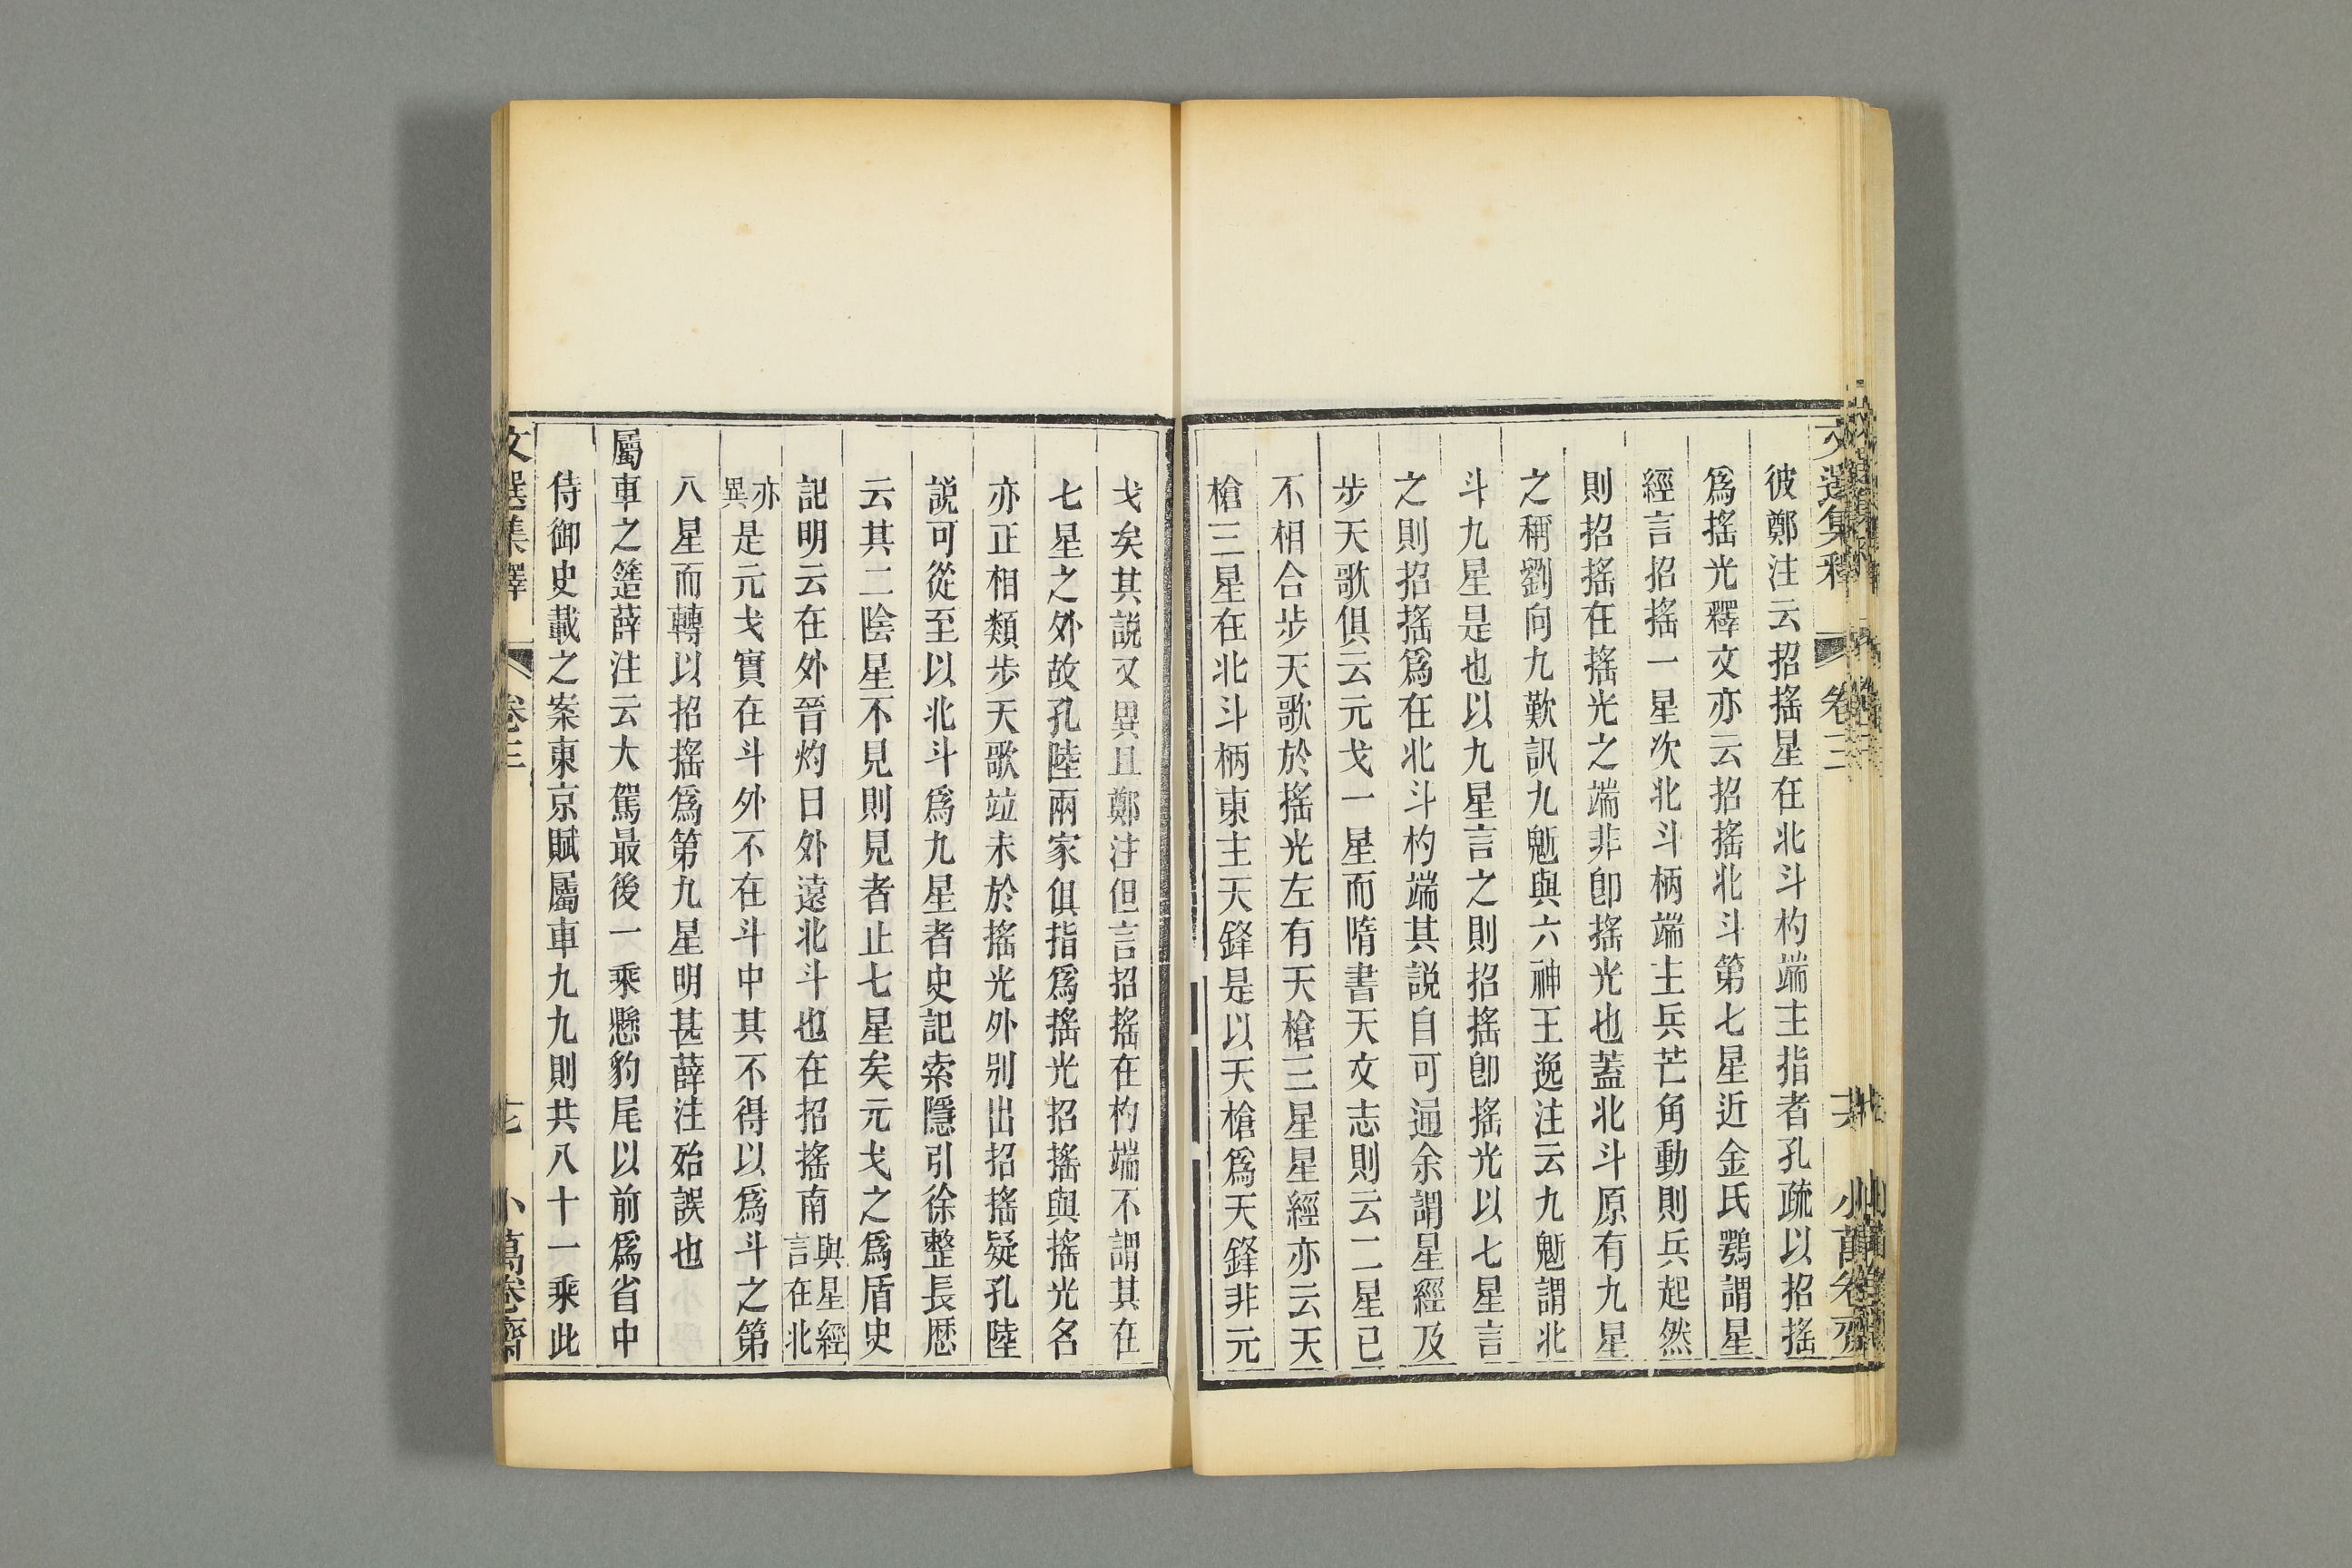 文選集釋 卷三 小萬卷齋
彼鄭注云招搖星在北斗杓端主指者孔疏以招搖
爲搖光釋文亦云招搖北斗第七星近金氏鶚謂星
經言招搖一星次北斗柄端主兵芒角動則兵起然
則招搖在搖光之端非卽搖光也蓋北斗原有九星
之稱劉向九歎訊九鬿與六神王逸注云九鬿謂北
斗九星是也以九星言之則招搖卽搖光以七星言
之則招搖爲在北斗杓端其說自可通余謂星經及
步天歌俱云元戈一星而隋書天文志則云二星已
不相合步天歌於搖光左有天槍三星星經亦云天
槍三星在北斗柄東主天鋒是以天槍爲天鋒非元
戈矣其說又異且鄭注但言招搖在杓端不謂其在
七星之外故孔陸兩家俱指爲搖光招搖與搖光名
亦正相類步天歌竝未於搖光外別出招搖疑孔陸
說可從至以北斗爲九星者史記索隱引徐整長歷
云其二陰星不見則見者止七星矣元戈之爲盾史
記明云在外晉灼曰外遠北斗也在招搖南與星經言在北
亦異是元戈實在斗外不在斗中其不得以爲斗之第
八星而轉以招搖爲第九星明甚薛注殆誤也
屬車之簉薛注云大駕最後一乘懸豹尾以前爲省中
侍御史載之案東京賦屬車九九則共八十一乘此
文選集釋 卷三 七 小萬卷齋